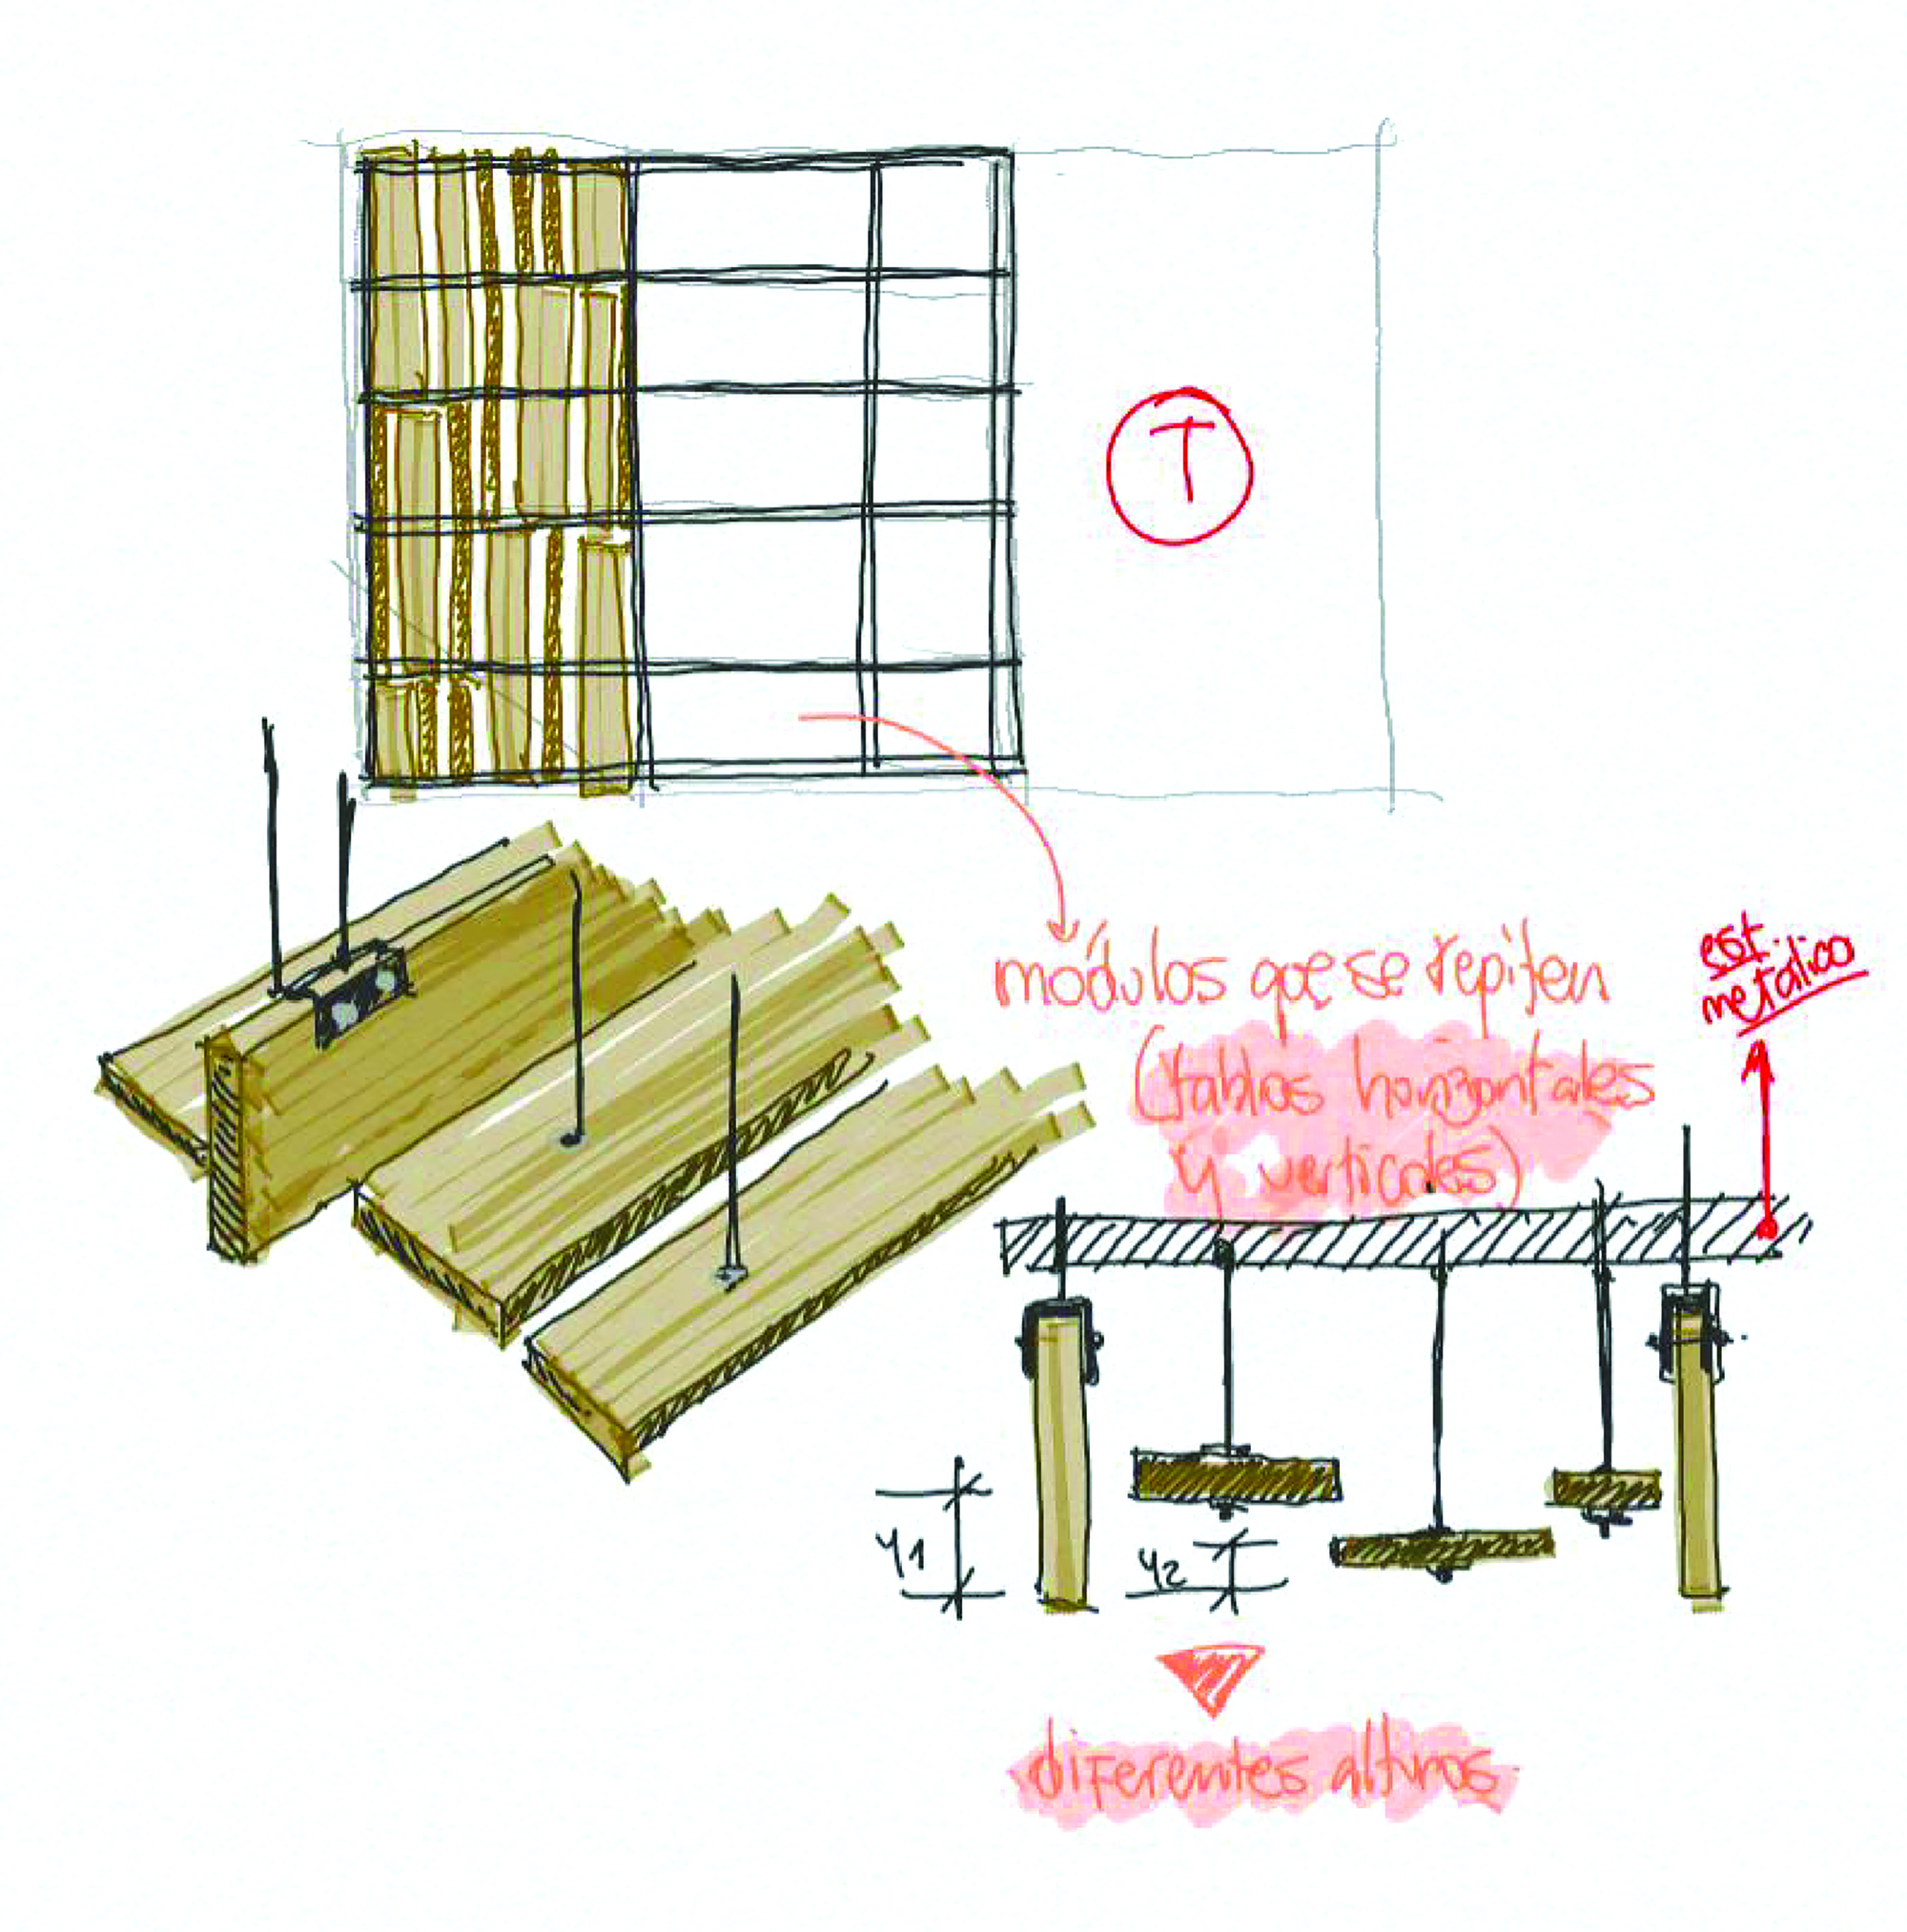 T
módulos que se repiten
(tablas horizontales
y verticales)
est.
metálico
y1
y2
diferentes alturas.